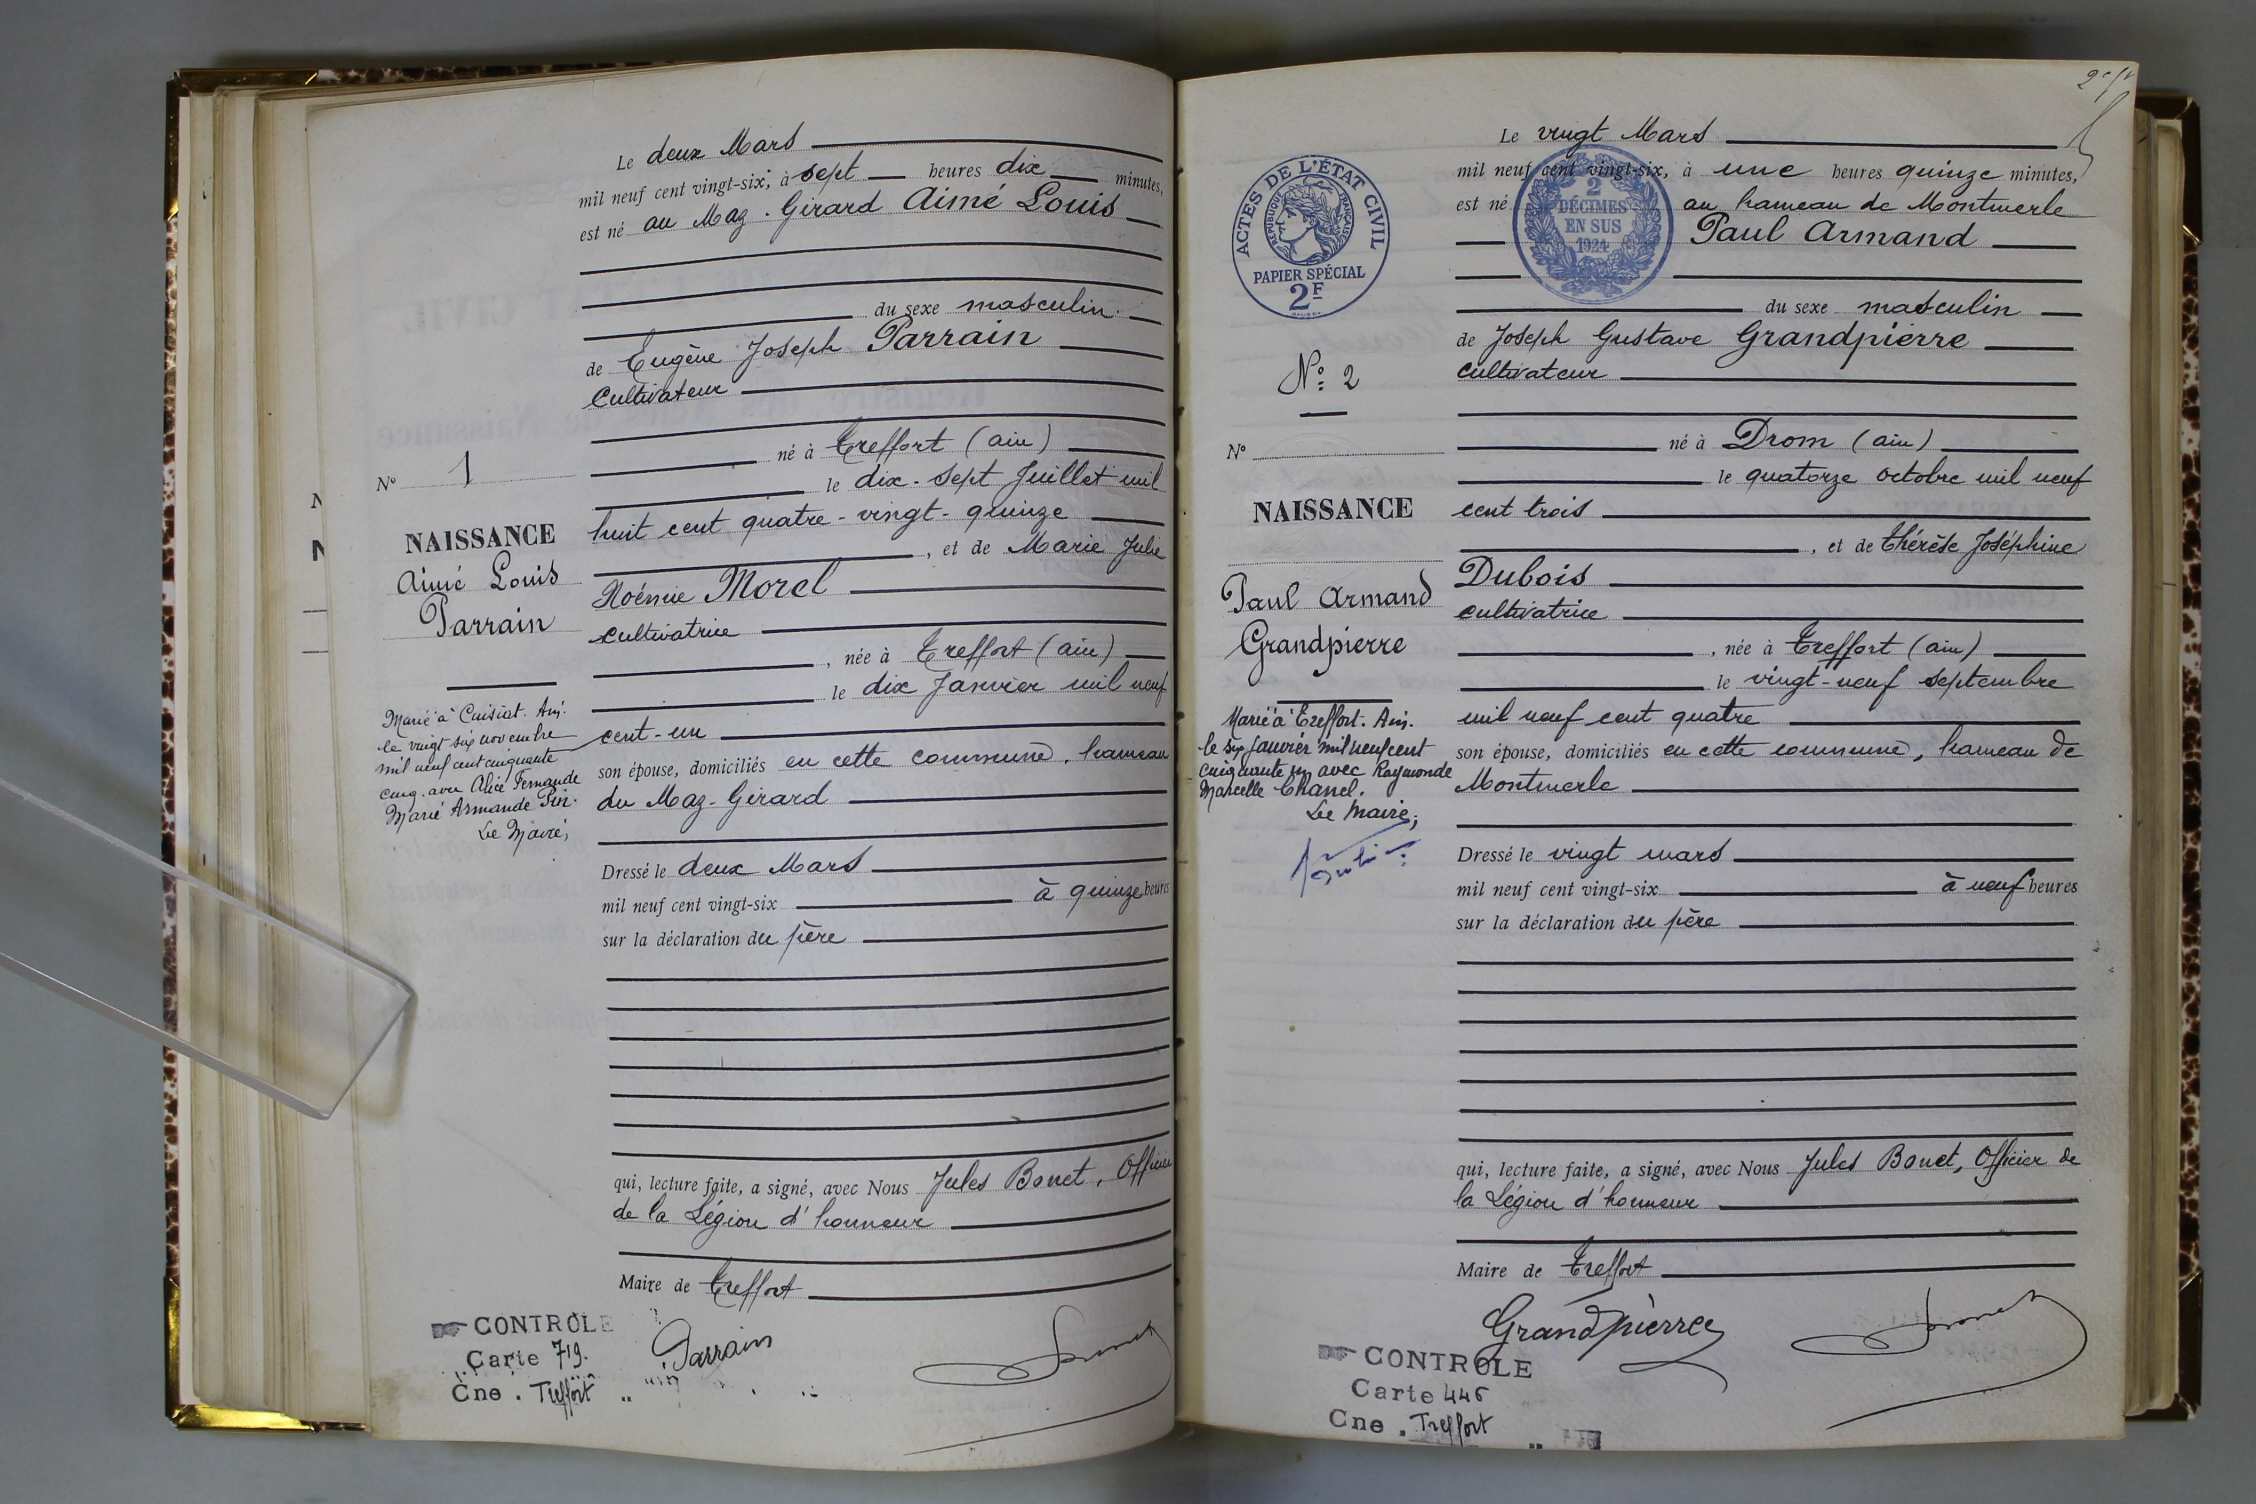 Le deux Mars
mil neuf cent vingt-six, à sept heures dix minutes,
est né au Maz-Girard Aimé Louis
du sexe masculin
de Eugène Joseph Parrain
Cultivateur
né à Treffort (Ain)
le dix-sept Juillet mil
huit cent quatre-vingt-quinze
, et de Marie Julie
Noémie Morel
cultivatrice
, née à Treffort (ain)
le dix Janvier mil neuf
cent-un
son épouse, domiciliés en cette commune, hameau
du Maz-Girard
Dressé le deux Mars
mil neuf cent vingt-six à quinze heures
sur la déclaration du père
qui, lecture faite, a signé, avec Nous Jules Bonet, Officier
de la Légion d'honneur
Maire de Treffort
Parrain
No 1
NAISSANCE
Aimé Louis
Parrain
Marié à Cuisiat. Ain.
le vingt six novembre
mil neuf cent cinquante
cinq. avec Alice Fernande
Marie Armande Pin.
Le Maire,
CONTROLE
Carte 719.
Cne. Treffort
2e ft
Le vingt Mars
mil neuf cent vingt-six, à une heures quinze minutes,
est né au hameau de Montmerle
Paul Armand
du sexe masculin
de Joseph Gustave Grandpierre
cultivateur
né à Drom (ain)
le quatorze octobre mil neuf
cent trois
, et de Thérèse Joséphine
Dubois
cultivatrice
, née à Treffort (ain)
le vingt-neuf septembre
mil neuf cent quatre
son épouse, domiciliés en cette commune, hameau de
Montmerle
Dressé le vingt mars
mil neuf cent vingt-six à neuf heures
sur la déclaration du père
qui, lecture faite, a signé, avec Nous Jules Bonet, Officier de
la Légion d'honneur
Maire de Treffort
Grandpierre
ACTES DE L'ÉTAT CIVIL
RÉPUBLIQUE FRANÇAISE
PAPIER SPÉCIAL
2F
2
DÉCIMES
EN SUS
1924
No: 2
No
NAISSANCE
Paul Armand
Grandpierre
Marié à Treffort. Ain.
le six Janvier mil neuf cent
cinquante un avec Raymonde
Marcelle Chanel.
Le Maire,
CONTROLE
Carte 446
Cne. Treffort